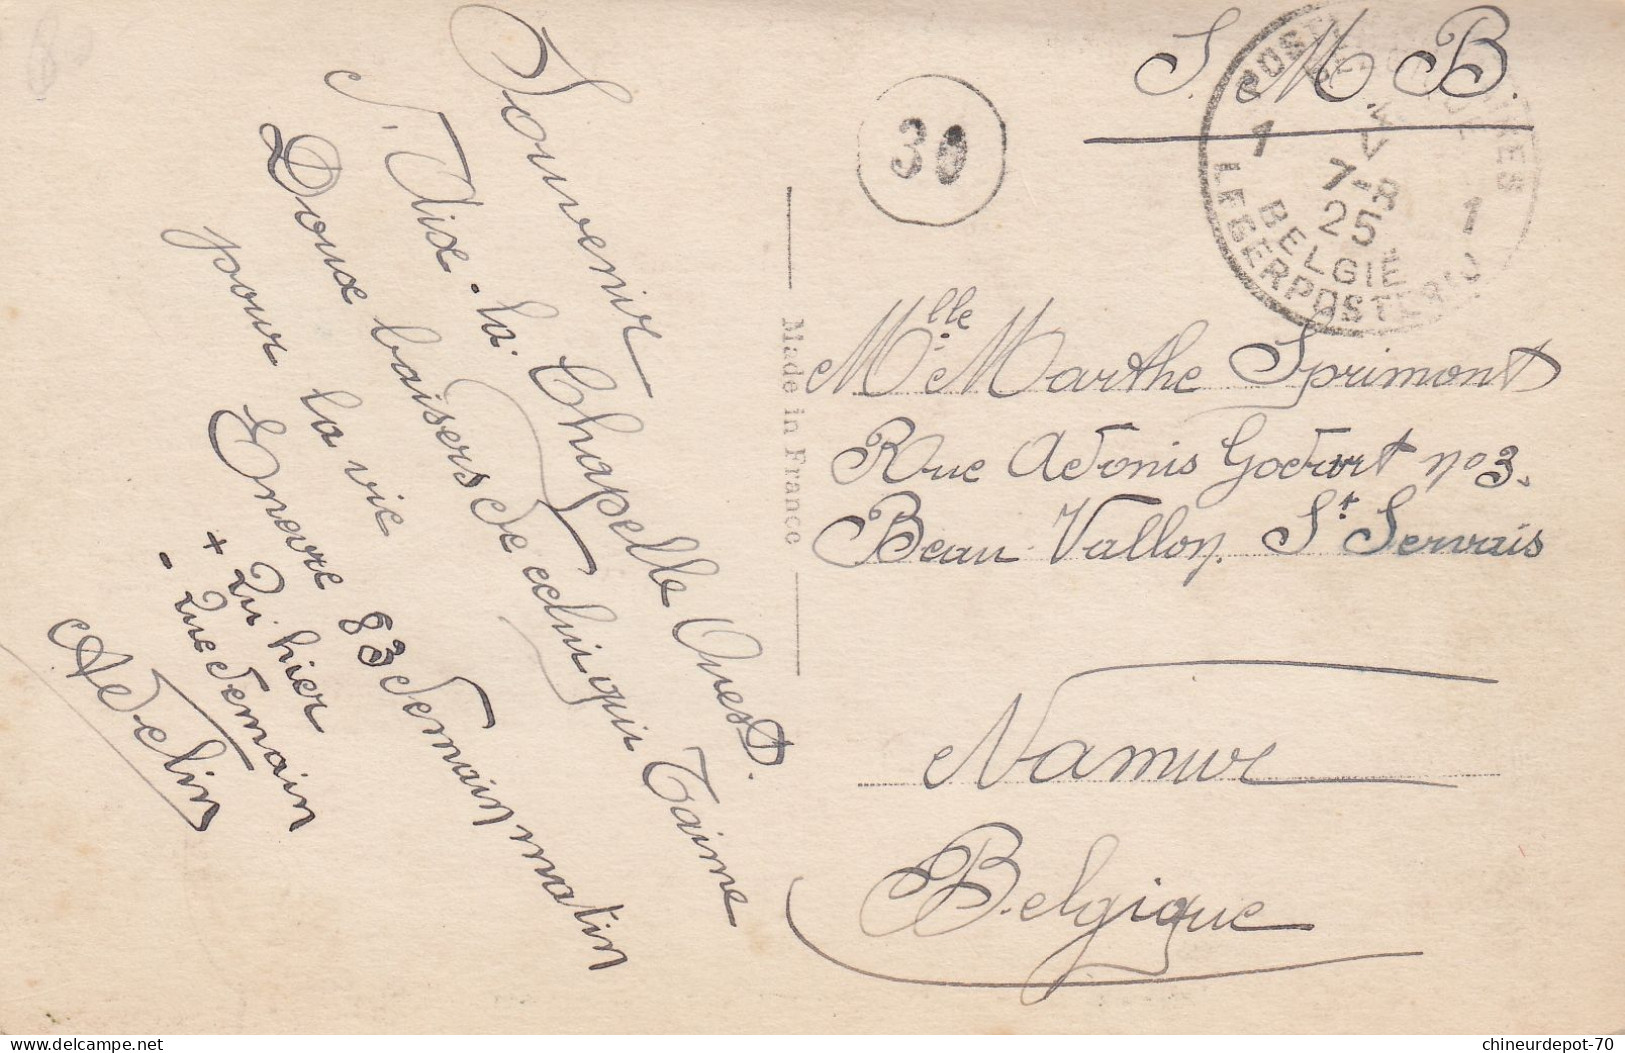 Souvenir
d'Aix-la-Chapelle Ouest.
Doux baisers de celui qui T'aime
pour la vie
Encore 83 demain matin
+ Qu'hier
- Que demain
Adelin
Made in France
30
S. M B.
POSTES MILITAIRES
BELGIQUE
1 1
V
7-8
25
BELGIË
LEGERPOSTERIJ
Mlle Marthe Sprimont
Rue Adonis Godart no 3.
Beau Vallon. St Servais
Namur
Belgique
chineurdepot-70